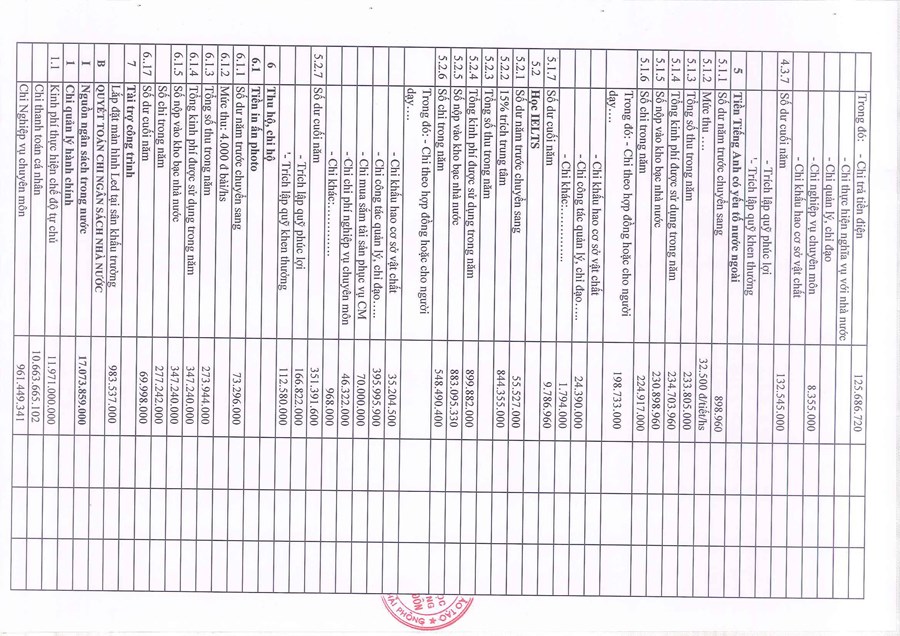 Trong đó: - Chi trả tiền điện 125.686.720
- Chi thực hiện nghĩa vụ với nhà nước
- Chi quản lý, chỉ đạo
- Chi nghiệp vụ chuyên môn 8.355.000
- Chi khấu hao cơ sở vật chất
4.3.7 Số dư cuối năm 132.545.000
- Trích lập quỹ phúc lợi
'- Trích lập quỹ khen thưởng
5 Tiền Tiếng Anh có yếu tố nước ngoài
5.1.1 Số dư năm trước chuyển sang 898.960
5.1.2 Mức thu …. 32.500 đ/tiết/hs
5.1.3 Tổng số thu trong năm 233.805.000
5.1.4 Tổng kinh phí được sử dụng trong năm 234.703.960
5.1.5 Số nộp vào kho bạc nhà nước 230.898.960
5.1.6 Số chi trong năm 224.917.000
Trong đó: - Chi theo hợp đồng hoặc cho người
dạy…. 198.733.000
- Chi khấu hao cơ sở vật chất
- Chi công tác quản lý, chỉ đạo….. 24.390.000
- Chi khác:…………… 1.794.000
5.1.7 Số dư cuối năm 9.786.960
5.2 Học IELTS
5.2.1 Số dư năm trước chuyển sang 55.527.000
5.2.2 15% trích trung tâm
5.2.3 Tổng số thu trong năm 844.355.000
5.2.4 Tổng kinh phí được sử dụng trong năm 899.882.000
5.2.5 Số nộp vào kho bạc nhà nước 883.095.330
5.2.6 Số chi trong năm 548.490.400
Trong đó: - Chi theo hợp đồng hoặc cho người
dạy….
- Chi khấu hao cơ sở vật chất 35.204.500
- Chi công tác quản lý, chỉ đạo….. 395.995.900
- Chi mua sắm tài sản phục vụ CM 70.000.000
- Chi chi phí nghiệp vụ chuyên môn 46.322.000
- Chi khác:…………… 968.000
5.2.7 Số dư cuối năm 351.391.600
- Trích lập quỹ phúc lợi 166.822.000
'- Trích lập quỹ khen thưởng 112.580.000
6 Thu hộ, chi hộ
6.1 Tiền in ấn photo
6.1.1 Số dư năm trước chuyển sang 73.296.000
6.1.2 Mức thu: 4.000 đ bài/hs
6.1.3 Tổng số thu trong năm 273.944.000
6.1.4 Tổng kinh phí được sử dụng trong năm 347.240.000
6.1.5 Số nộp vào kho bạc nhà nước 347.240.000
Số chi trong năm 277.242.000
6..17 Số dư cuối năm 69.998.000
7 Tài trợ công trình
Lắp đặt màn hình Led tại sân khấu trường 983.537.000
B QUYẾT TOÁN CHI NGÂN SÁCH NHÀ NƯỚC
I Nguồn ngân sách trong nước 17.073.859.000
1 Chi quản lý hành chính
1.1 Kinh phí thực hiện chế độ tự chủ 11.971.000.000
Chi thanh toán cá nhân 10.663.665.102
Chi Nghiệp vụ chuyên môn 961.449.341